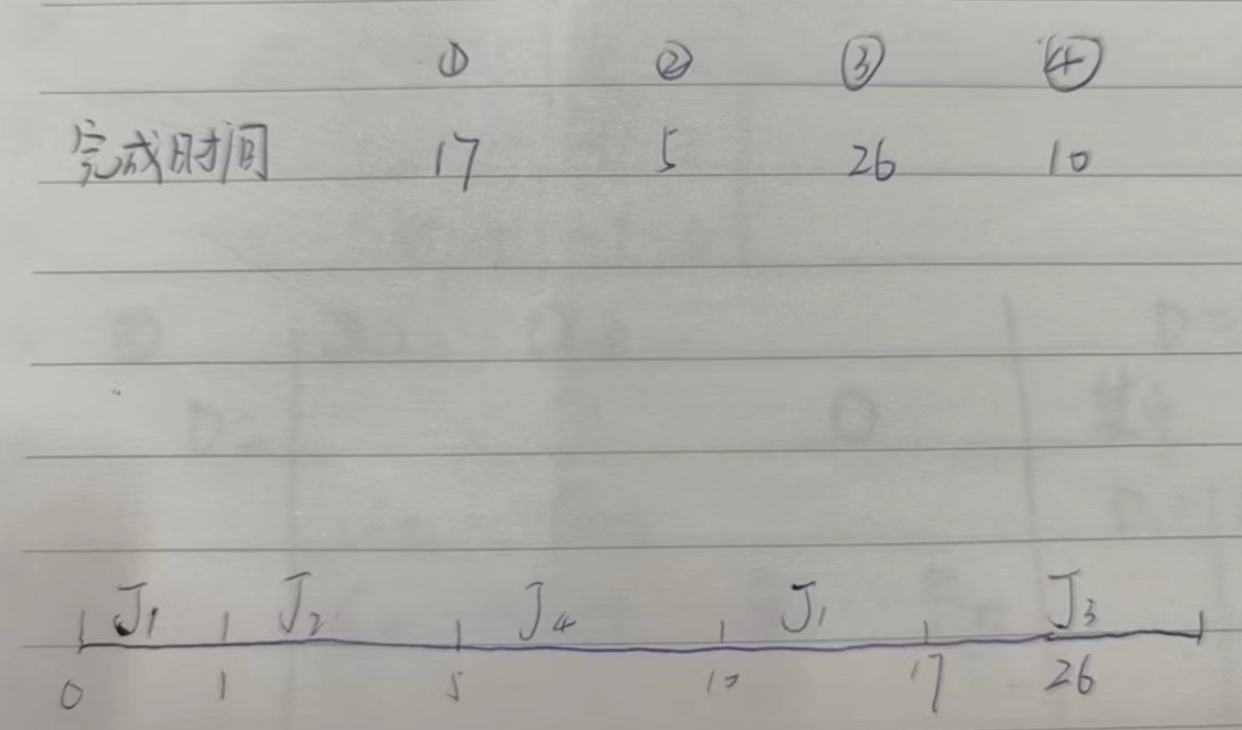 ① ② ③ ④
完成时间 17 5 26 10
J1 J2 J4 J1 J3
0 1 5 10 17 26